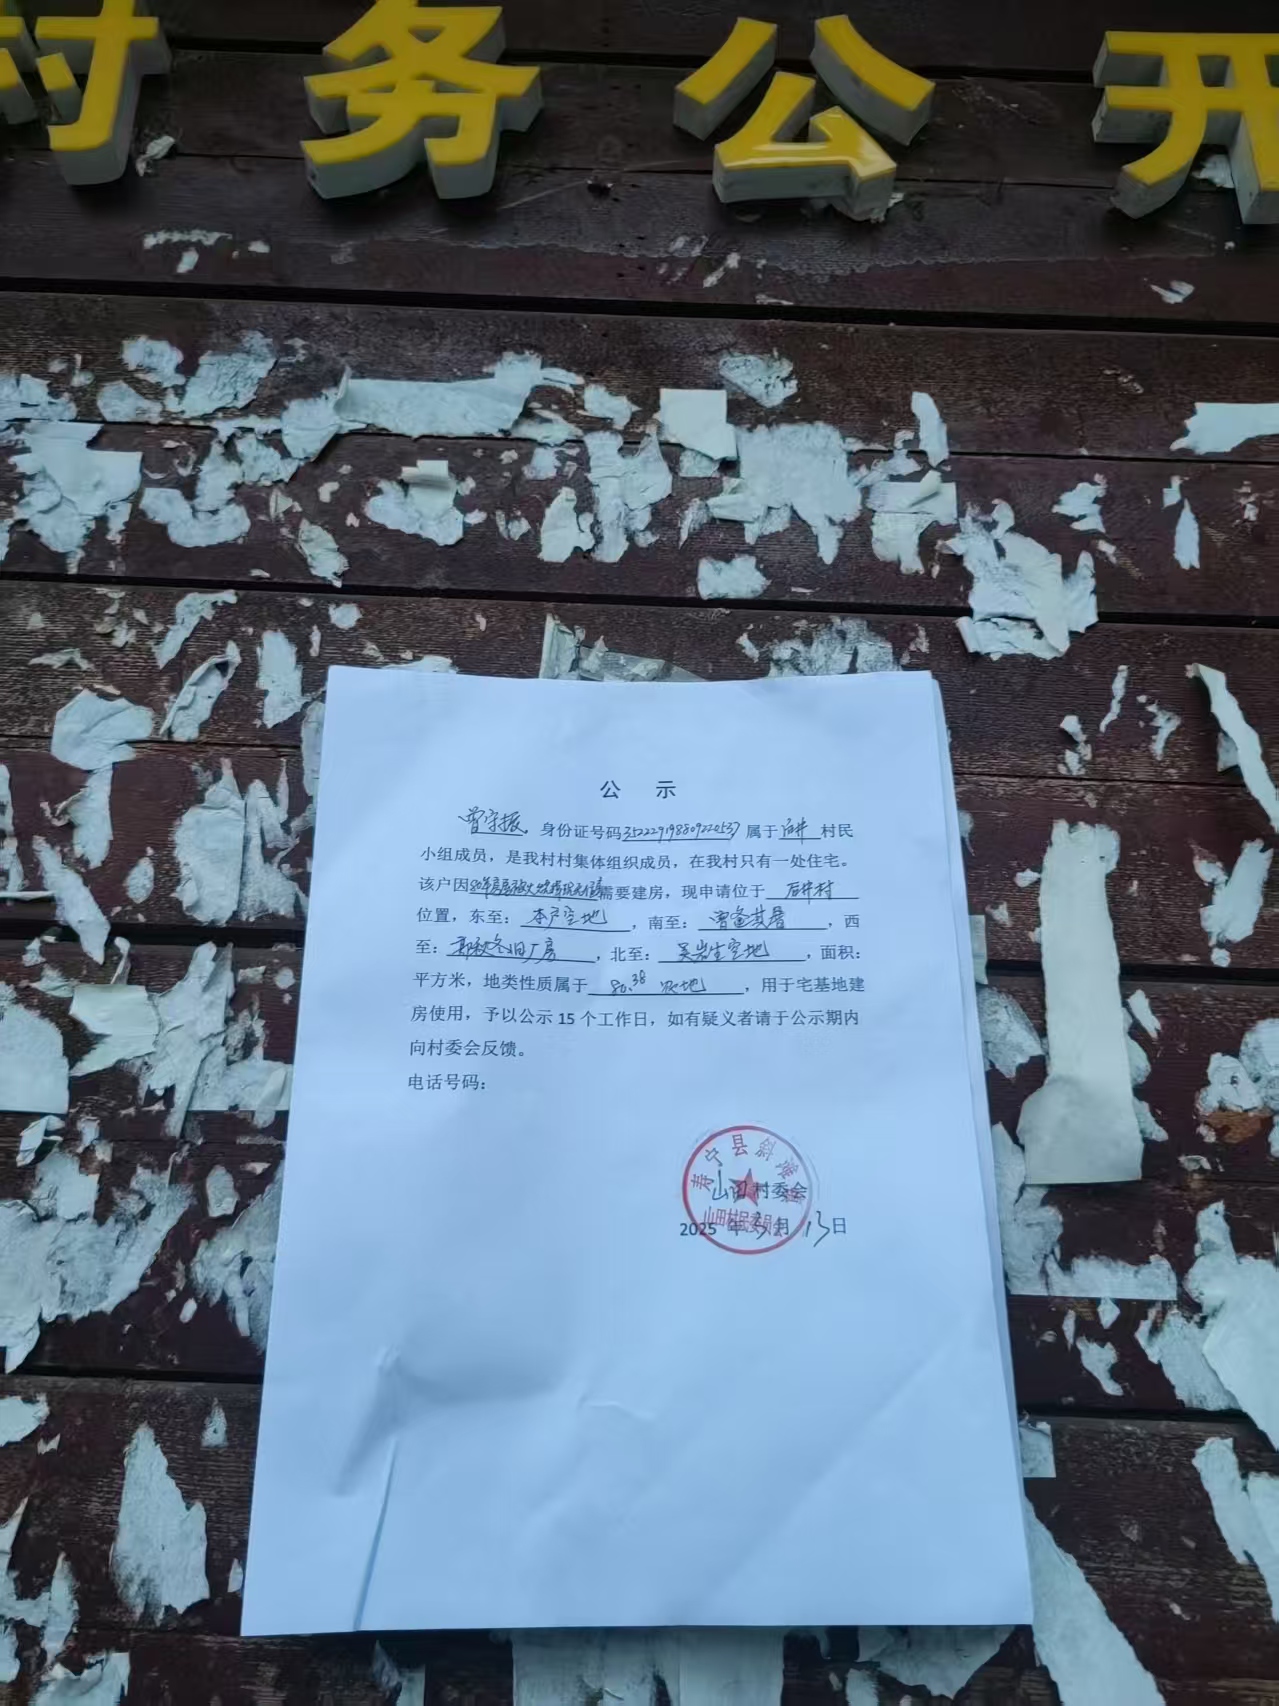 村务公开
公 示
曾守振。身份证号码352229198809220537属于后井村民
小组成员，是我村村集体组织成员，在我村只有一处住宅。
该户因 需要建房，现申请位于 后井村
位置，东至：本户空地，南至：曾 ，西
至：郭秋冬旧厂房，北至：吴岩生空地，面积：
平方米，地类性质属于 80.38 地，用于宅基地建
房使用，予以公示 15 个工作日，如有疑义者请于公示期内
向村委会反馈。
电话号码：
寿宁县斜滩镇
山田村委会
山田村民委员会
2025 年 3 月 13 日